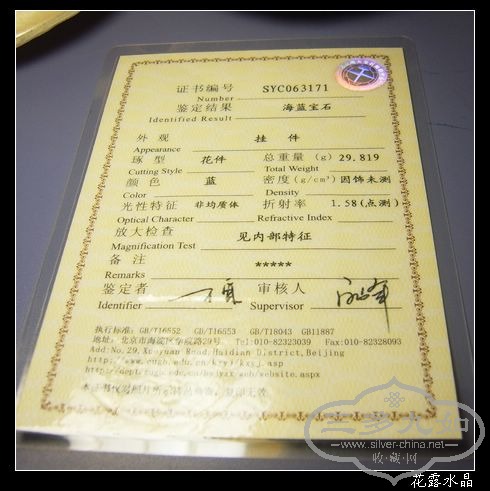 证书编号 SYC063171
Number
鉴定结果 海蓝宝石
Identified Result
外 观 挂 件
Appearance
琢 型 花件 总重量 (g) 29.819
Cutting Style Total Weight
颜 色 蓝 密度(g/cm³) 因饰未测
Color Density
光性特征 非均质体 折射率 1.58(点测)
Optical Character Refractive Index
放大检查 见内部特征
Magnification Test
备 注 *****
Remarks
鉴定者 审核人
Identifier Supervisor
执行标准: GB/T16552 GB/T16553 GB/T18043 GB11887
地址: 北京市海淀区学院路29号 Tel:010-82323039 Fax:010-82328093
Add:No.29,Xueyuan Road,Haidian District,Beijing
本证书仅对照片所示样品负责,复印无效
www.silver-china.net
收藏网
花露水晶